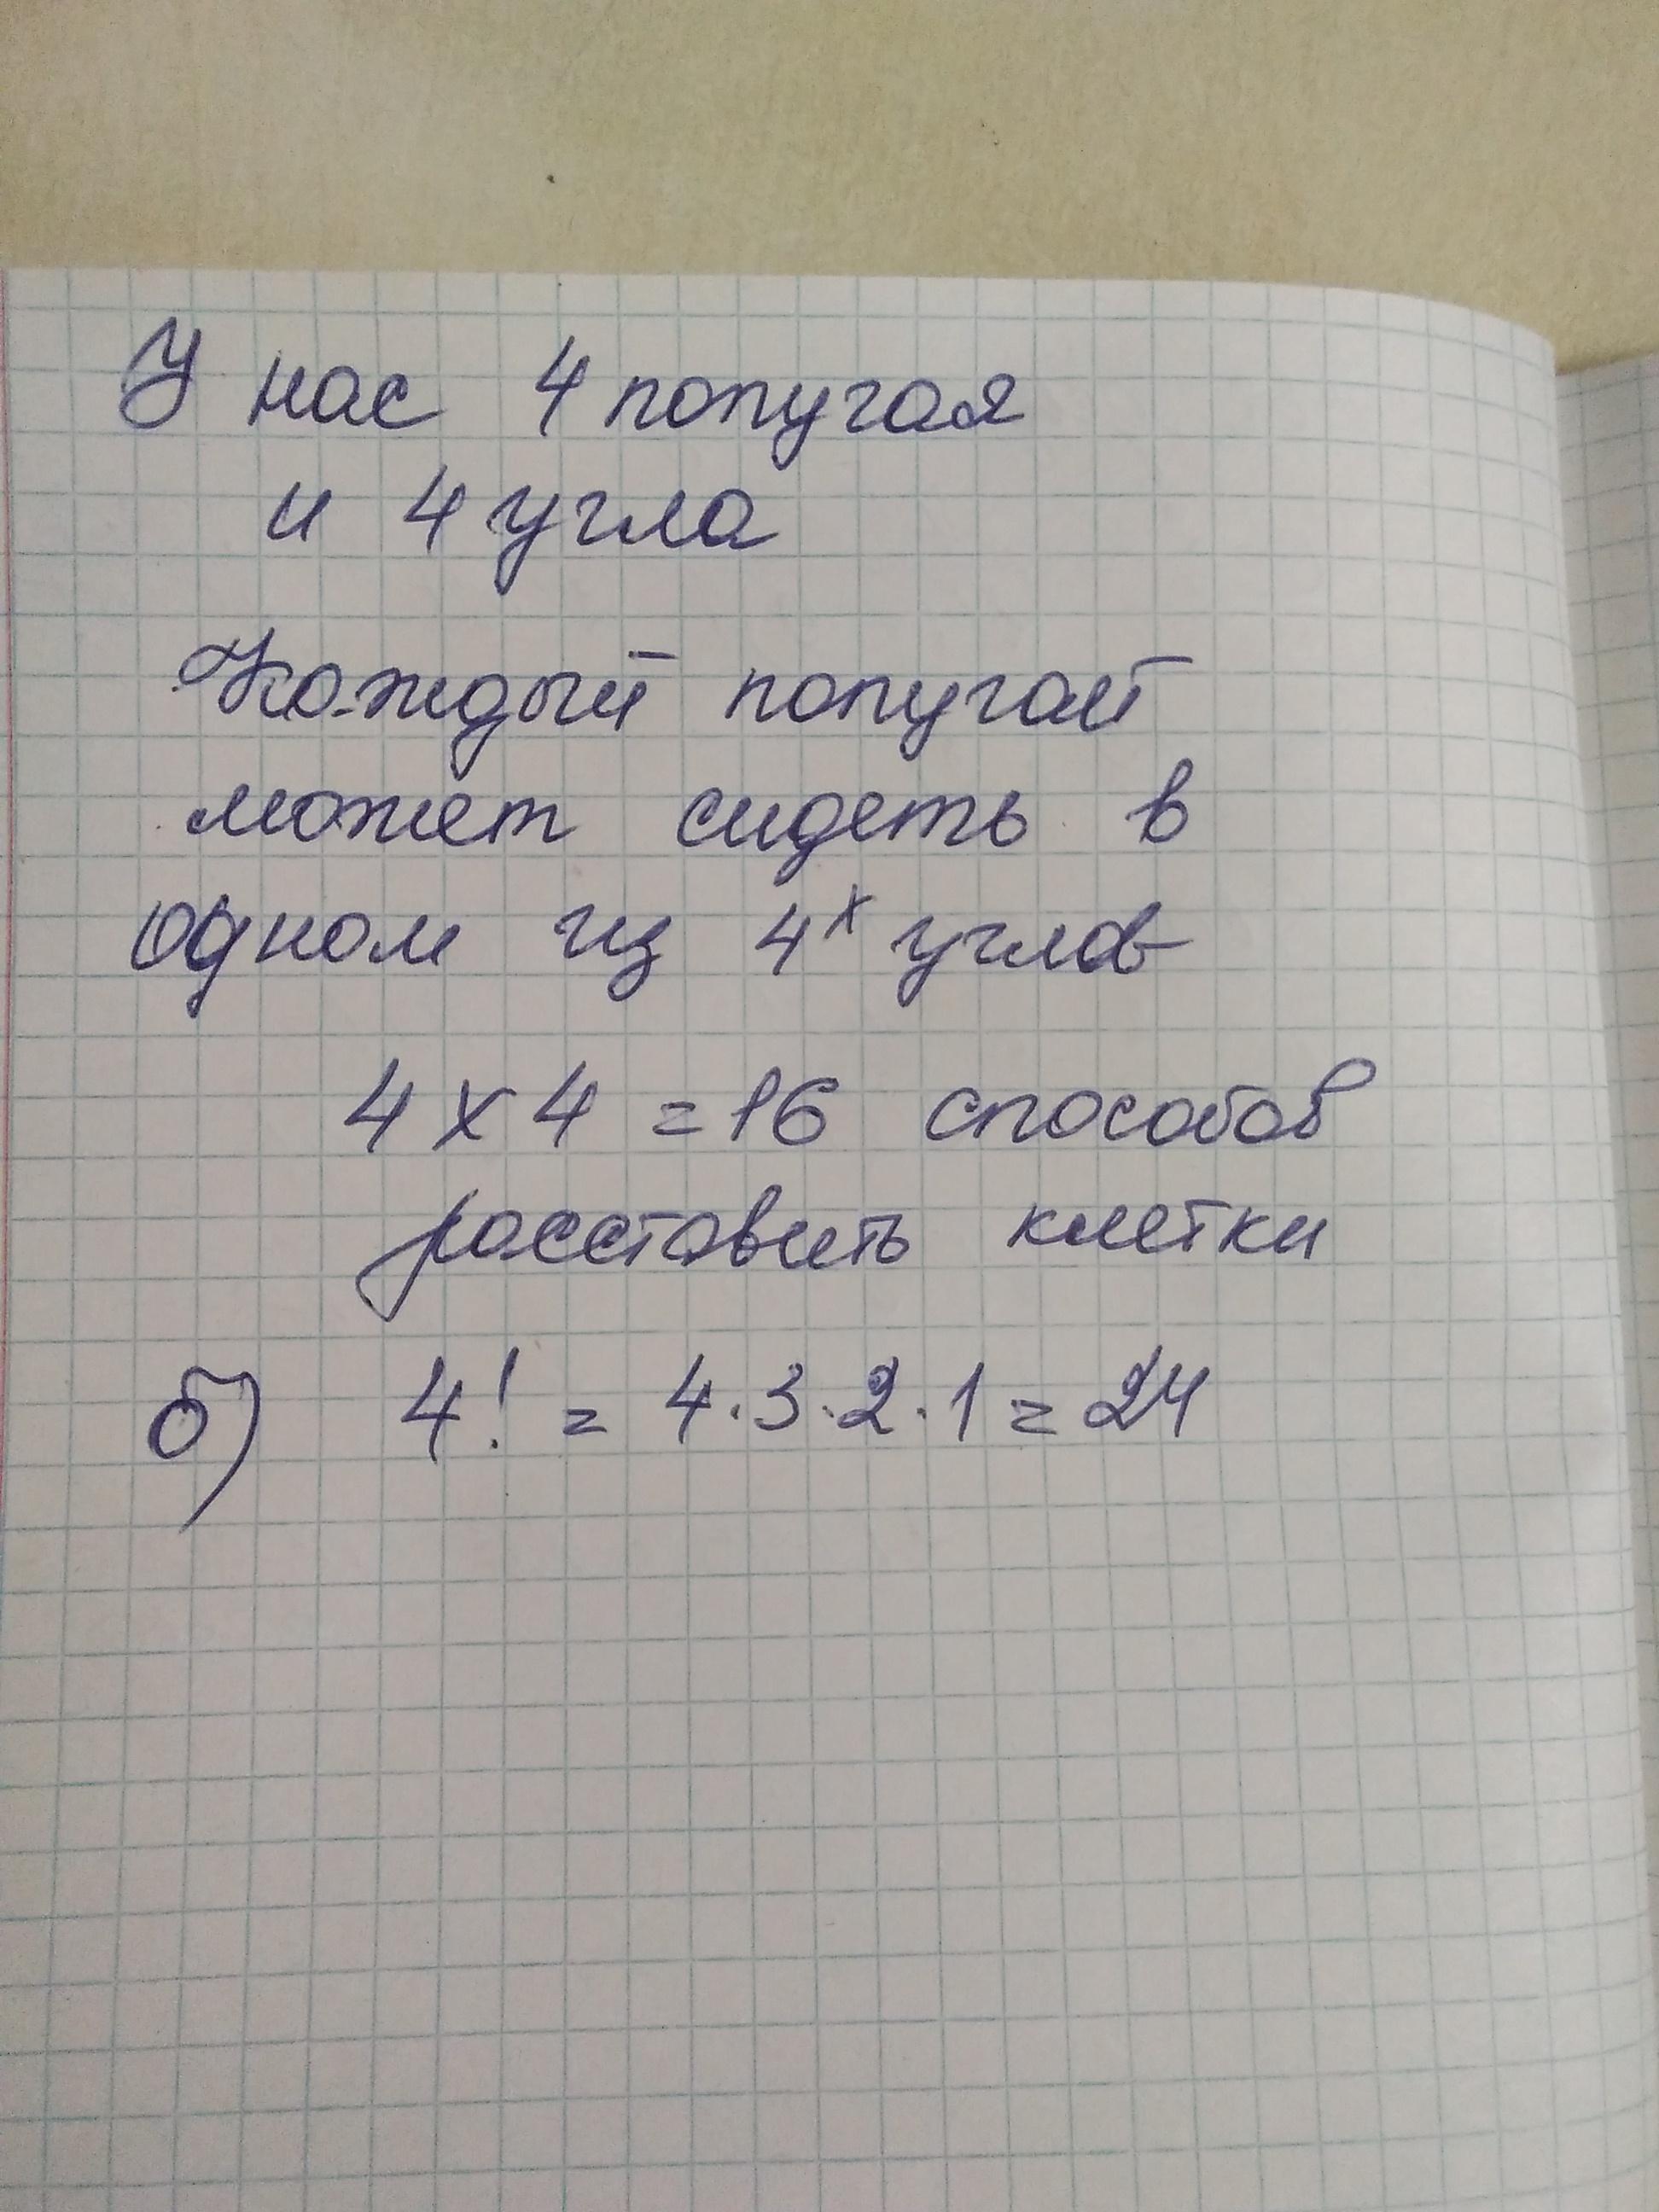 У нас 4 попугая
и 4 угла
Каждый попугай
может сидеть в
одном из 4х углов
4 х 4 = 16 способов
расставить клетки
б) 4! = 4·3·2·1 = 24